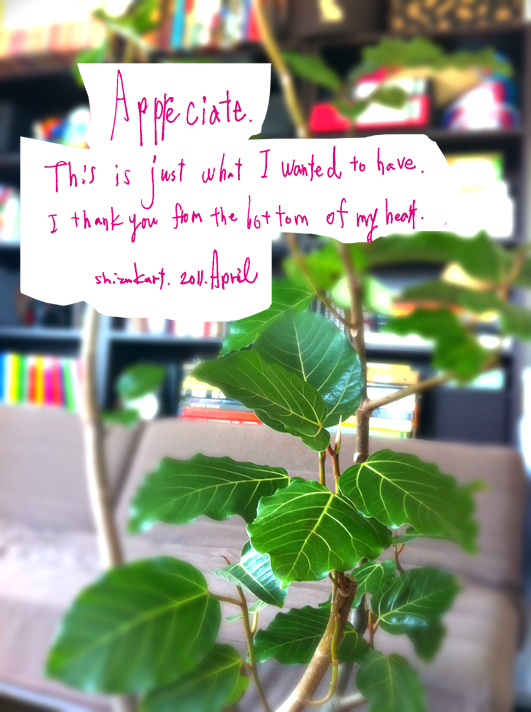 Appreciate.
This is just what I wanted to have.
I thank you from the bottom of my heart.
shizukart. 2011. April